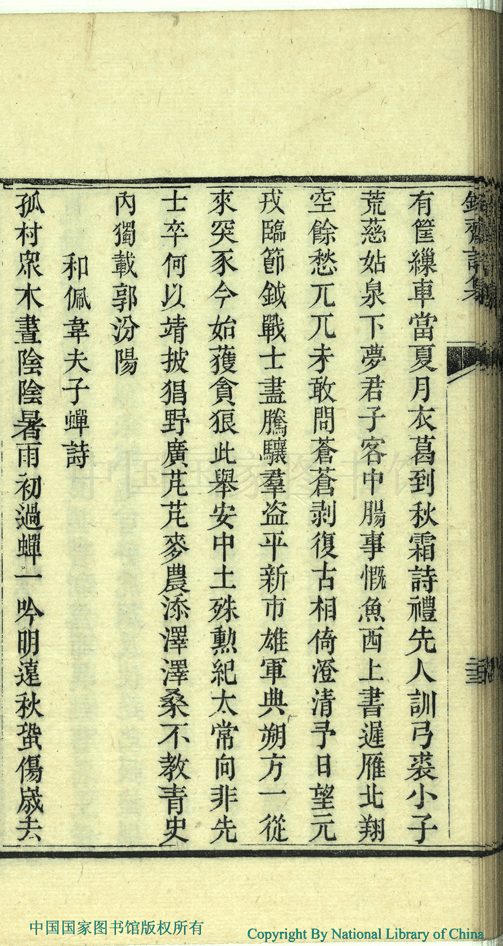 齋詩集
有筐繅車當夏月衣葛到秋霜詩禮先人訓弓裘小子
荒慈姑泉下夢君子客中腸事慨魚西上書遲雁北翔
空餘愁兀兀未敢問蒼蒼剥復古相倚澄清予日望元
戎臨節鉞戰士盡騰驤羣盗平新市雄軍典朔方一從
來突豕今始獲貪狼此舉安中土殊勲紀太常向非先
士卒何以靖披猖野廣芃芃麥農添澤澤桑不教青史
內獨載郭汾陽
和佩韋夫子蟬詩
孤村衆木晝陰陰暑雨初過蟬一吟明遠秋蛩傷歲去
中国国家图书馆
中国国家图书馆版权所有
Copyright By National Library of China